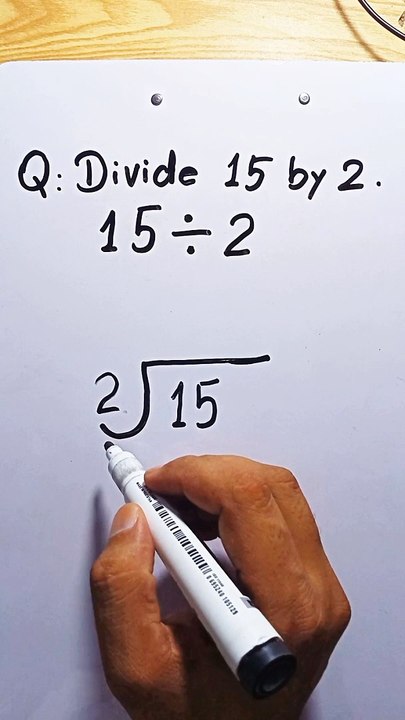 Q: Divide 15 by 2.
15 ÷ 2
2 15